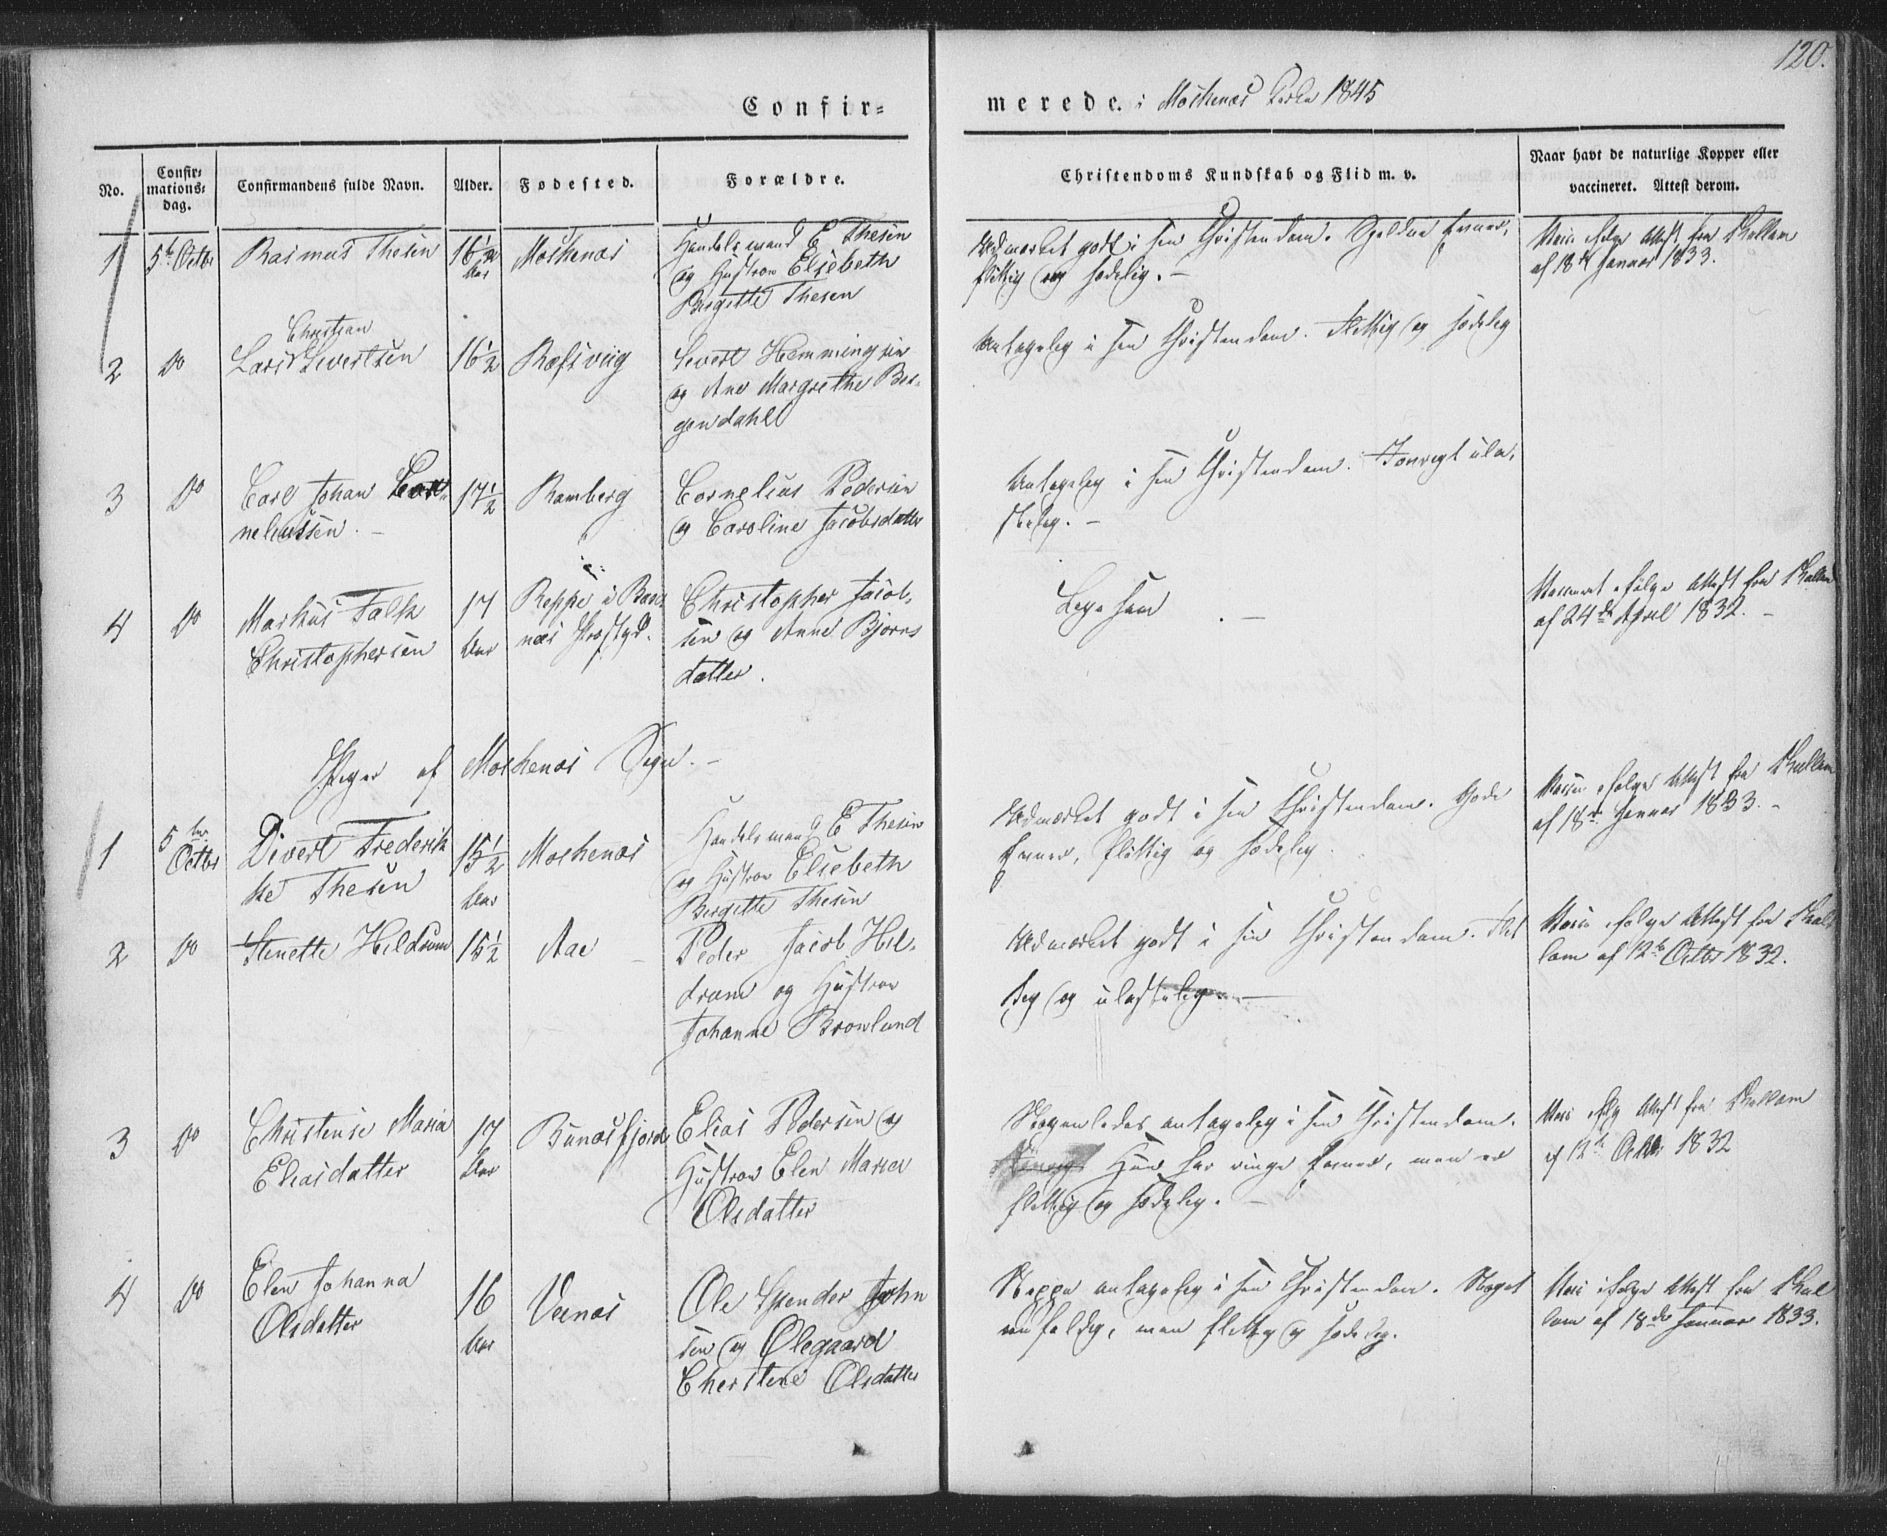 120.
Confir=
merede. i Moskenæs Kirke 1845
No.
Confir=
mations=
dag.
Confirmandens fulde Navn.
Alder.
Fødested.
Forældre.
Christendoms Kundskab og Flid m. v.
Naar havt de naturlige Kopper eller
vaccineret. Attest derom.
1 5te Octbr Rasmus Thesen 16½ Aar Moskenæs
Handelsmand E Thesen
og Hustroe Elsebeth
Birgitte Thesen
Udmærket godt i sin Christendom. Sjeldne Evner,
flittig og sædelig. –
Vacc. ifølge Attest fra Kallem
af 18de Januar 1833.
2 Do Lars Christian Sivertsen 16½ Refsviig
Sivert Hemmingsen
og Ane Margrethe Ber-
gendahl
Antagelig i sin Christendom. Flittig og sædelig
3 Do Carl Johan Cor-
neliussen. – 17½ Ramberg
Cornelius Pedersen
og Caroline Jacobsdatter
Antagelig i sin Christendom. Forøvrigt ula-
stelig. –
4 Do Markus Falk
Christophersen 17 Aar
Reppe i Bux-
næs Præstgd.
Christopher Jacob-
sen og Anne Bjørns
datter.
Ligesaa. –
Vaccineret ifølge Attest fra Kallem
af 24de April 1832. –
Piger af Moskenæs Sogn. –
1 5te Octbr Divert Frederik
ke Thesen 15½ Aar Moskenæs
Handelsmand E Thesen
og Hustroe Elsebeth
Birgitte Thesen
Udmærket godt i sin Christendom. Gode
Evner, flittig og sædelig.
Vaccin. ifølge Attest fra Kallem
af 18de Januar 1833. –
2 Do Stenette Hildrum 15½ Aae
Peder Jacob Hil-
drum og Hustroe
Johanne Browlund
Udmærket godt i sin Christendom. Flit
tig og ulastelig. –
Vaccin. ifølge Attest fra Kal
lem af 12te Octbr 1832.
3 Do Christense Maria
Eliasdatter 17 Aar Bunæsfjord
Elias Pedersen og
Hustroe Elen Maria
Olsdatter
Nogenledes antagelig i sin Christendom.
Hun har ringe Evner, men er
flittig og sædelig. –
Vacc. ifølg Attest fra Kallem
af 12te Octbr 1832
4 Do Elen Johanna
Olsdatter 16 Aar Veinæs
Ole Spender John
sen og Olegaard
Cherstene Olsdatter
Neppe antagelig i sin Christendom. Noget
eenfoldig, men flittig og sædelig.
Vacc. ifølge Attest fra Kal
lem af 18de Januar 1833.